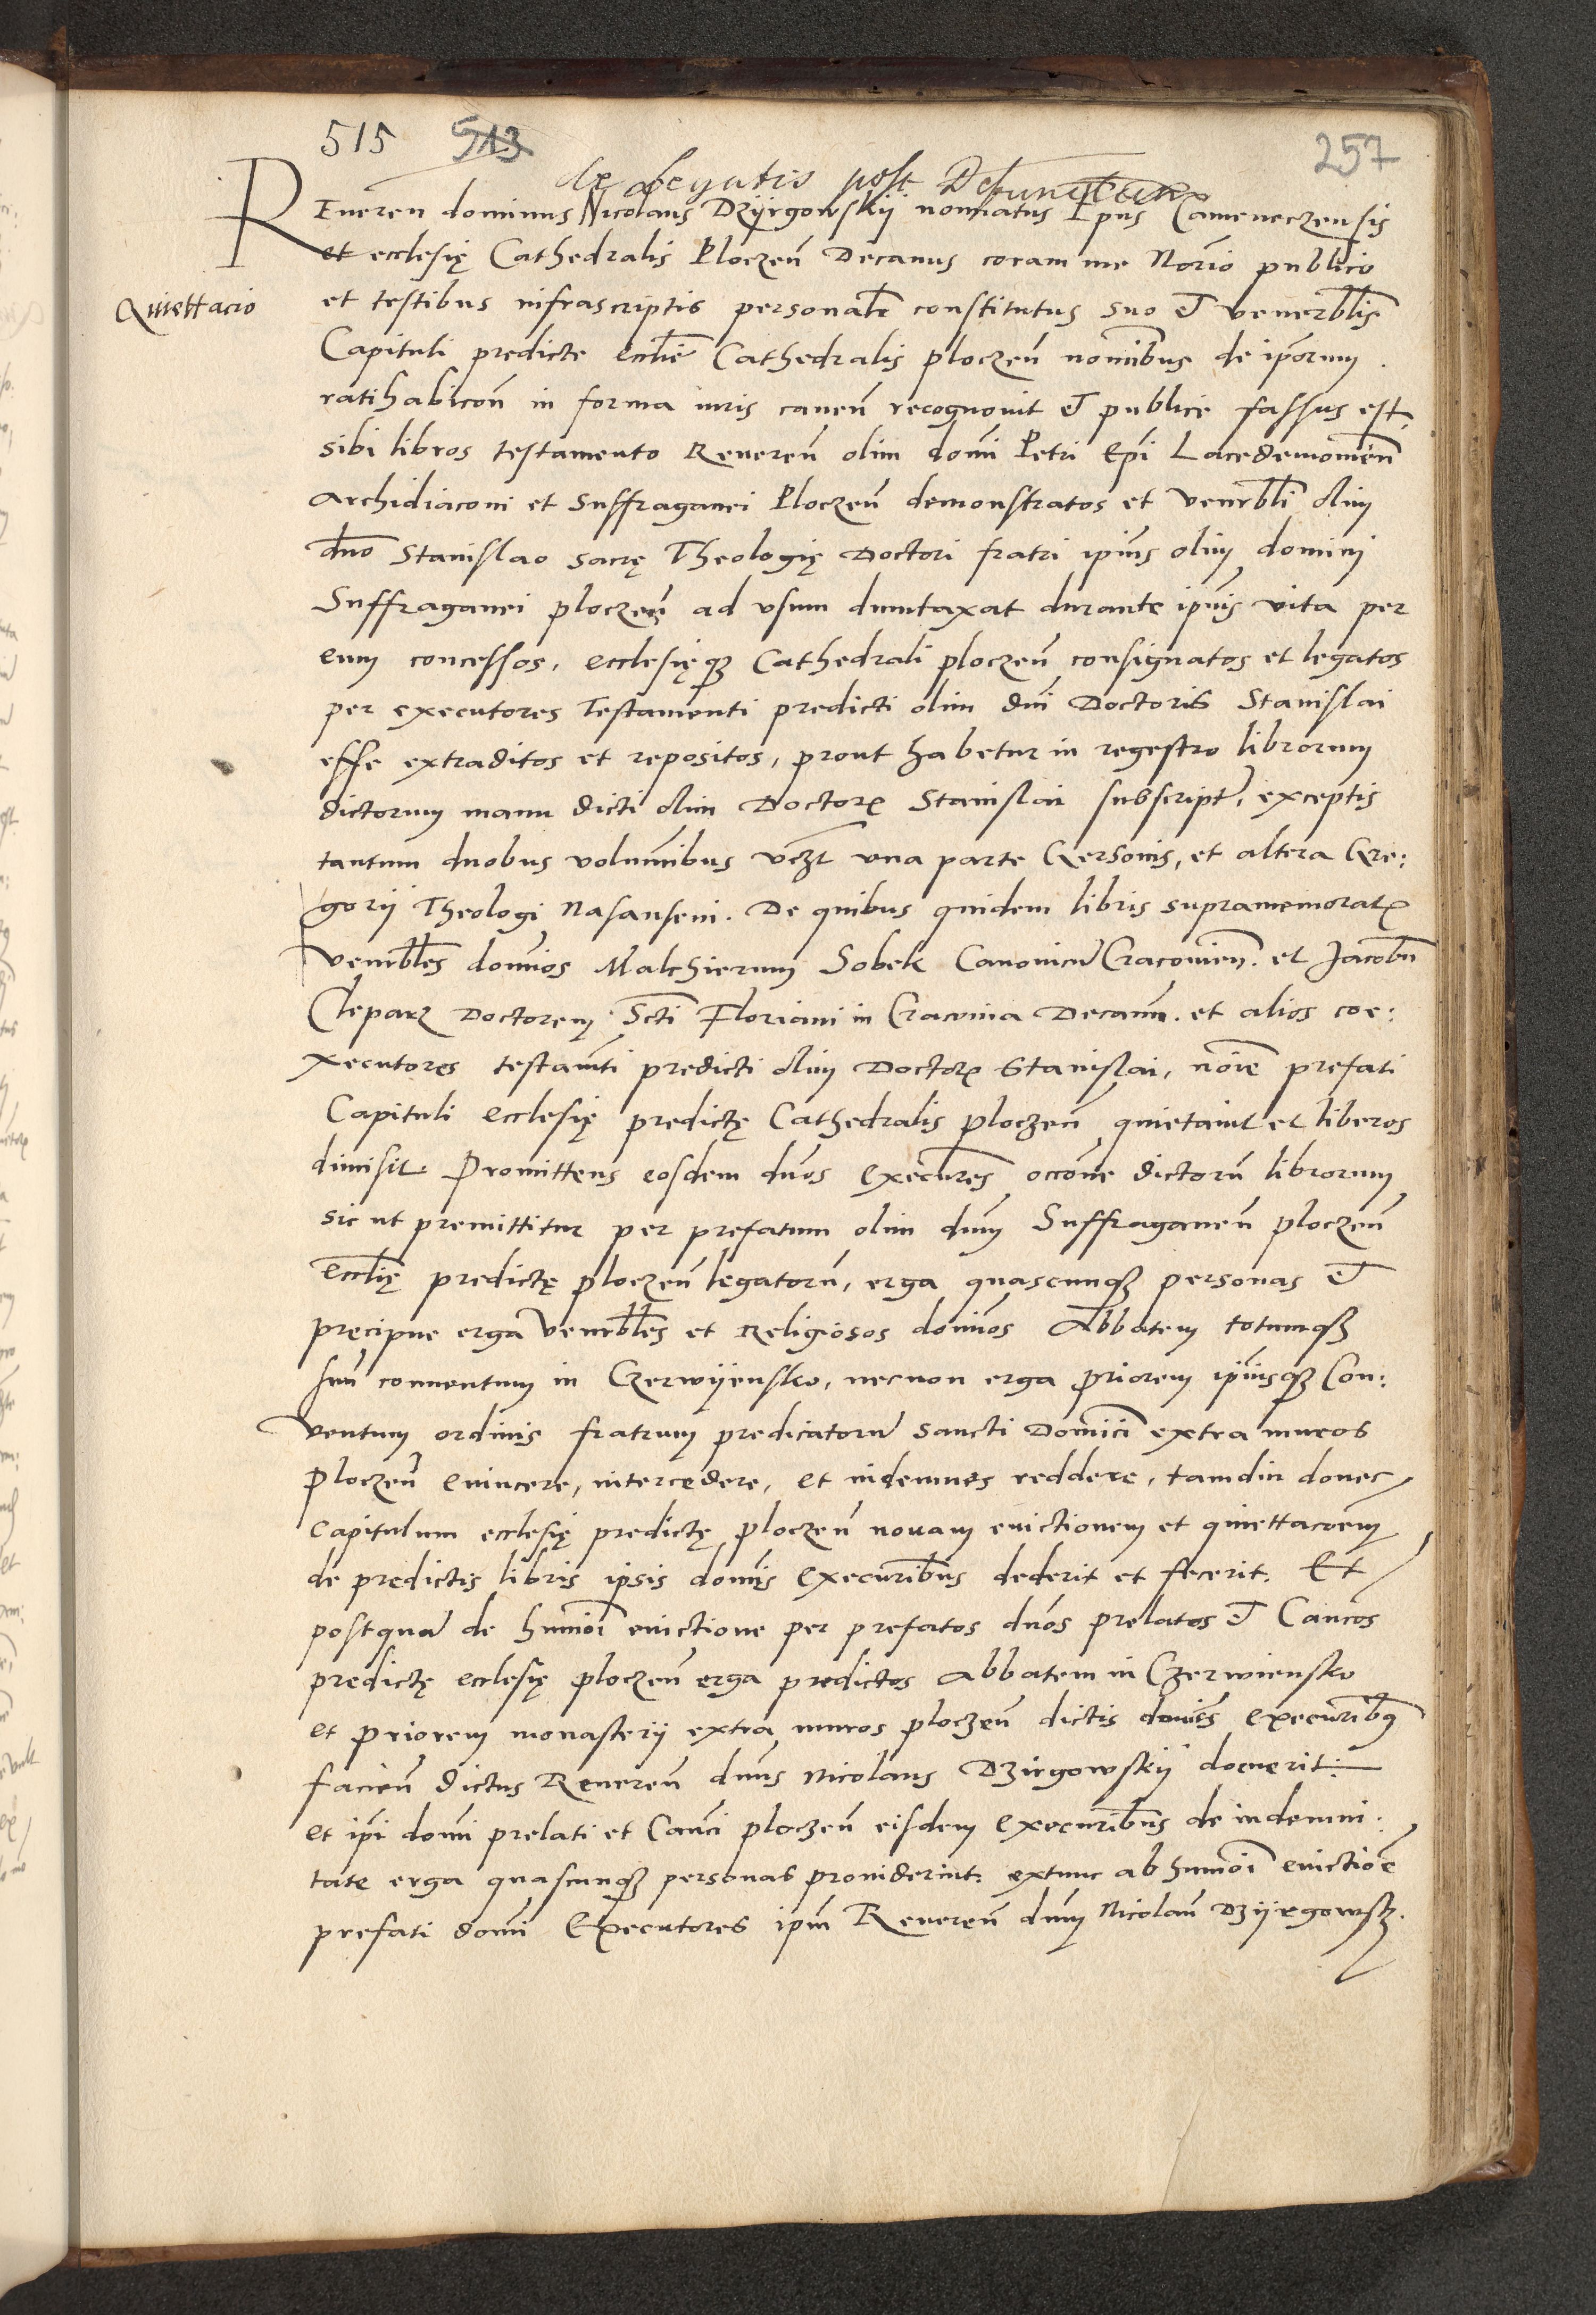 515 513 257
de Legatis post Defunctum
REueren dominus Nicolaus Dzyrgowskij nominatus Epus Cameneczensis
et ecclesię Cathedralis Ploczeñ Decanus coram me Norio publico
Quiettacio
et testibus infrascriptis personalr constitutus suo et venerblis
Capituli predicte ecclie Cathedralis ploczeñ nominibus de ipsorum
ratihabicoñ in forma iuris caueñ recognouit et publice fassus est,
sibi libros testamento Reuereñ olim domi Petri Epi Lacedemonieñ
Archidiaconi et Suffraganei Ploczeñ demonstratos et venrbli olim
dno Stanislao sacrę Theologię Doctori fratri ipius olim domini
Suffraganei ploczeñ ad vsum dumtaxat durante ipius vita per
eum concessos, ecclesięq3 Cathedrali ploczeñ consignatos et legatos
per executores Testamenti predicti olim dni Doctoris Stanislai
esse extraditos et repositos, prout habetur in regestro librorum
dictorum manu dicti olim Doctor Stanislai subscript, exceptis
tantum duobus voluminibus vczt vna parte Gersonis, et altera Gre:
gorij Theologi Nasanseni. De quibus quidem libris supramemorat
venrbles domios Malchierum Sobek Canonicu Cracouieñ. et Jacobu
Clepar Doctorem Scti Floriani in Cracouia Decanu. et alios coe:
xecutores testamti predicti olim Doctor Stanislai, noie prefati
Capituli ecclesię predictę Cathedralis ploczeñ quietauit et liberos
dimisit. Promittens eosdem dnos executres occone dictoru librorum
sic ut premittitur per prefatum olim dnm Suffraganeu ploczeñ
ecclię predictę ploczeñ legatoru, erga quascunq3 personas et
precipue erga venrbles et Religiosos domios Abbatem totumq3
suu conuentum in Czerwijensko, necnon erga priorem ipiusq3 Con:
ventum ordinis fratrum predicatoru sancti Domici extra muros
ploczeñ euincere, intercedere, et indemnes reddere, tamdiu donec
capitulum ecclesię predictę ploczeñ nouam euictionem et quiettacoem
de predictis libris ipsis domis executribus dederit et fecerit. Et
postqua de humoi euictione per prefatos dnos prelatos et Cancos
predictę ecclesię ploczeñ erga predictos Abbatem in Czerwiensko
et priorem monasterij extra muros ploczeñ dictis domis executribus
facieñ dictus Reuereñ dnus Nicolaus Dzirgowskij docuerit:
et ipi domi prelati et Canci ploczeñ eisdem executribus de indemni:
tate erga quascunq3 personas prouiderint: extunc ab humoi euictioe
prefati domi Executores ipm Reuereñ dnm Nicolau Dzijrgowsk.